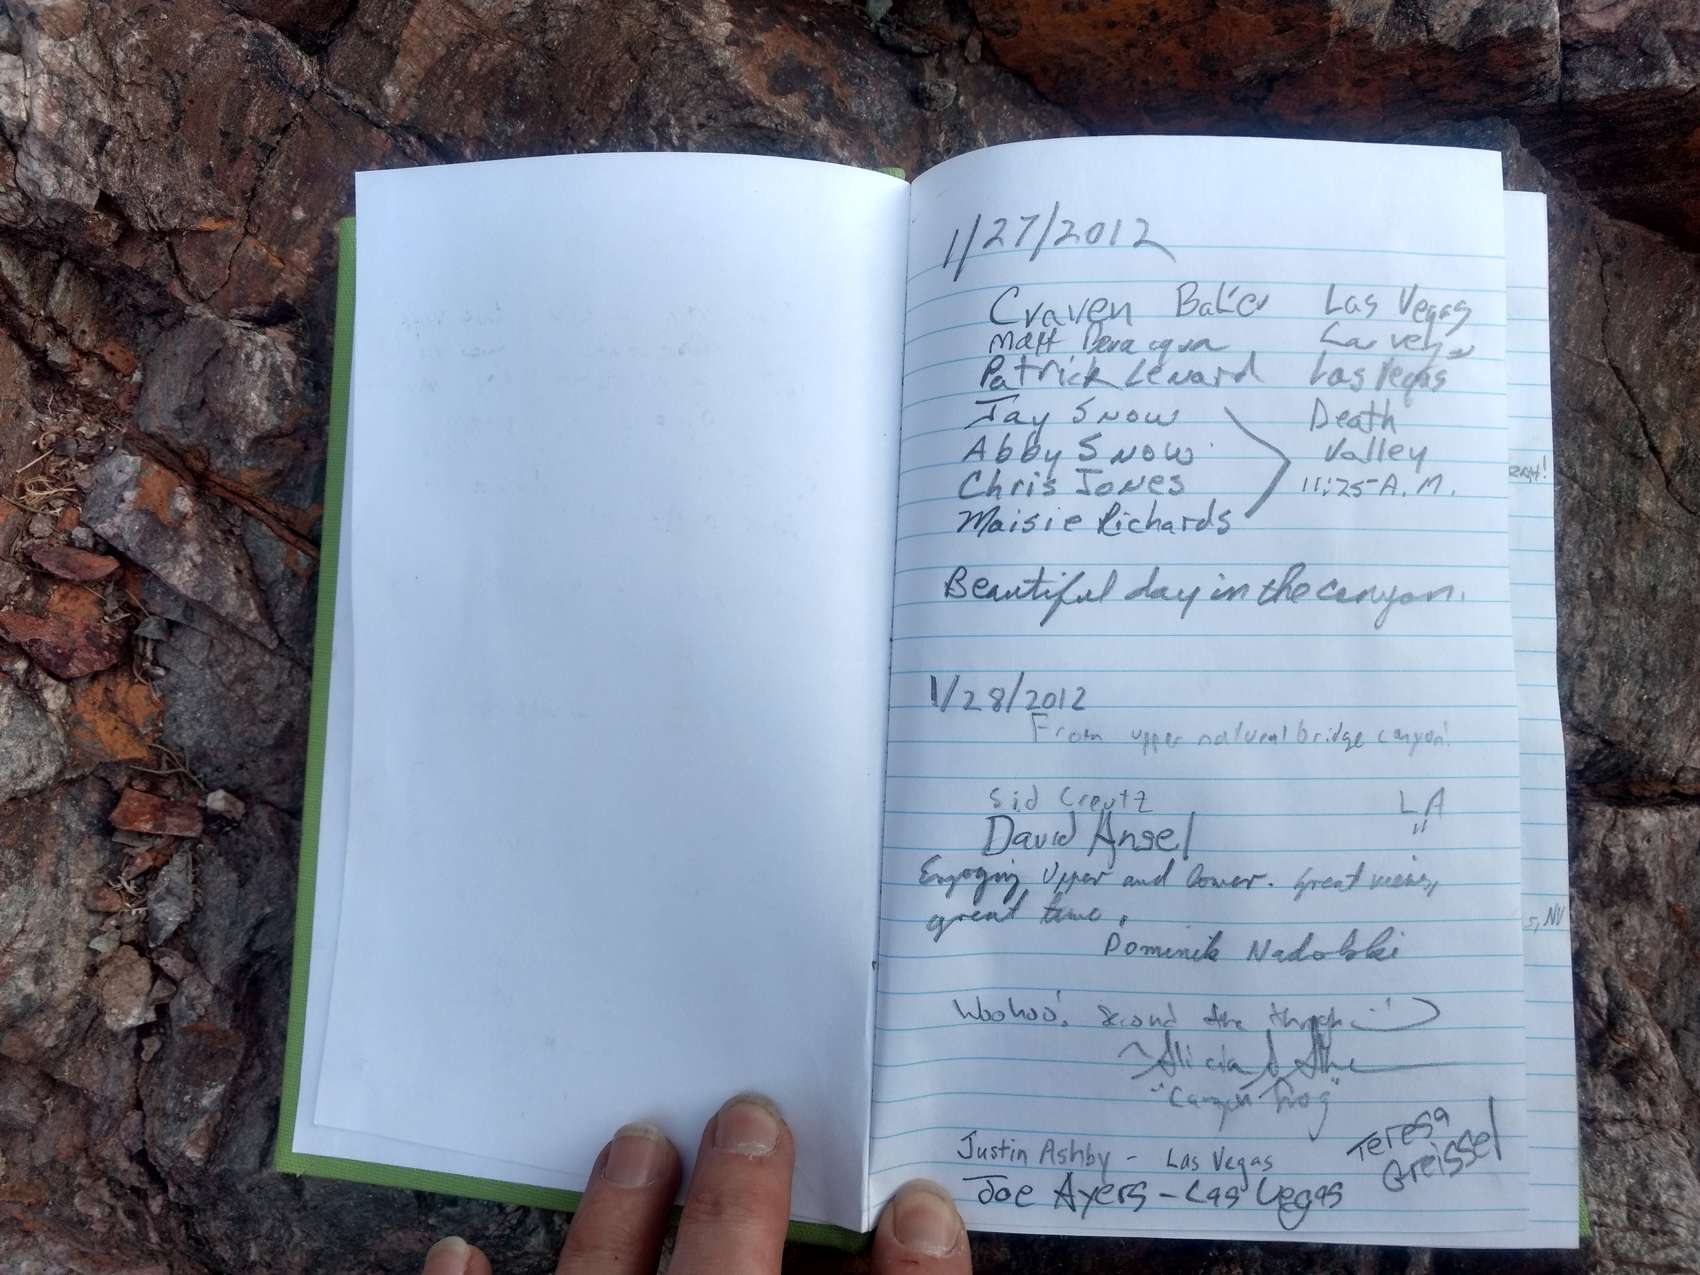 1/27/2012
Craven Baker Las Vegas
Matt Bevacqua Las Vegas
Patrick Lenard Las Vegas
Jay Snow Death
Abby Snow Valley
Chris Jones 11:25 A.M.
Maisie Richards
Beautiful day in the canyon.
1/28/2012
From upper natural bridge canyon!
Sid Creutz LA
David Angel "
Upper and lower. Great views,
great time.
Dominik Nadolski
Woohoo! Second time through :)
~Alicia
"Canyon Frog"
Teresa
Greissel
Justin Ashby - Las Vegas
Joe Ayers - Las Vegas
s, NV